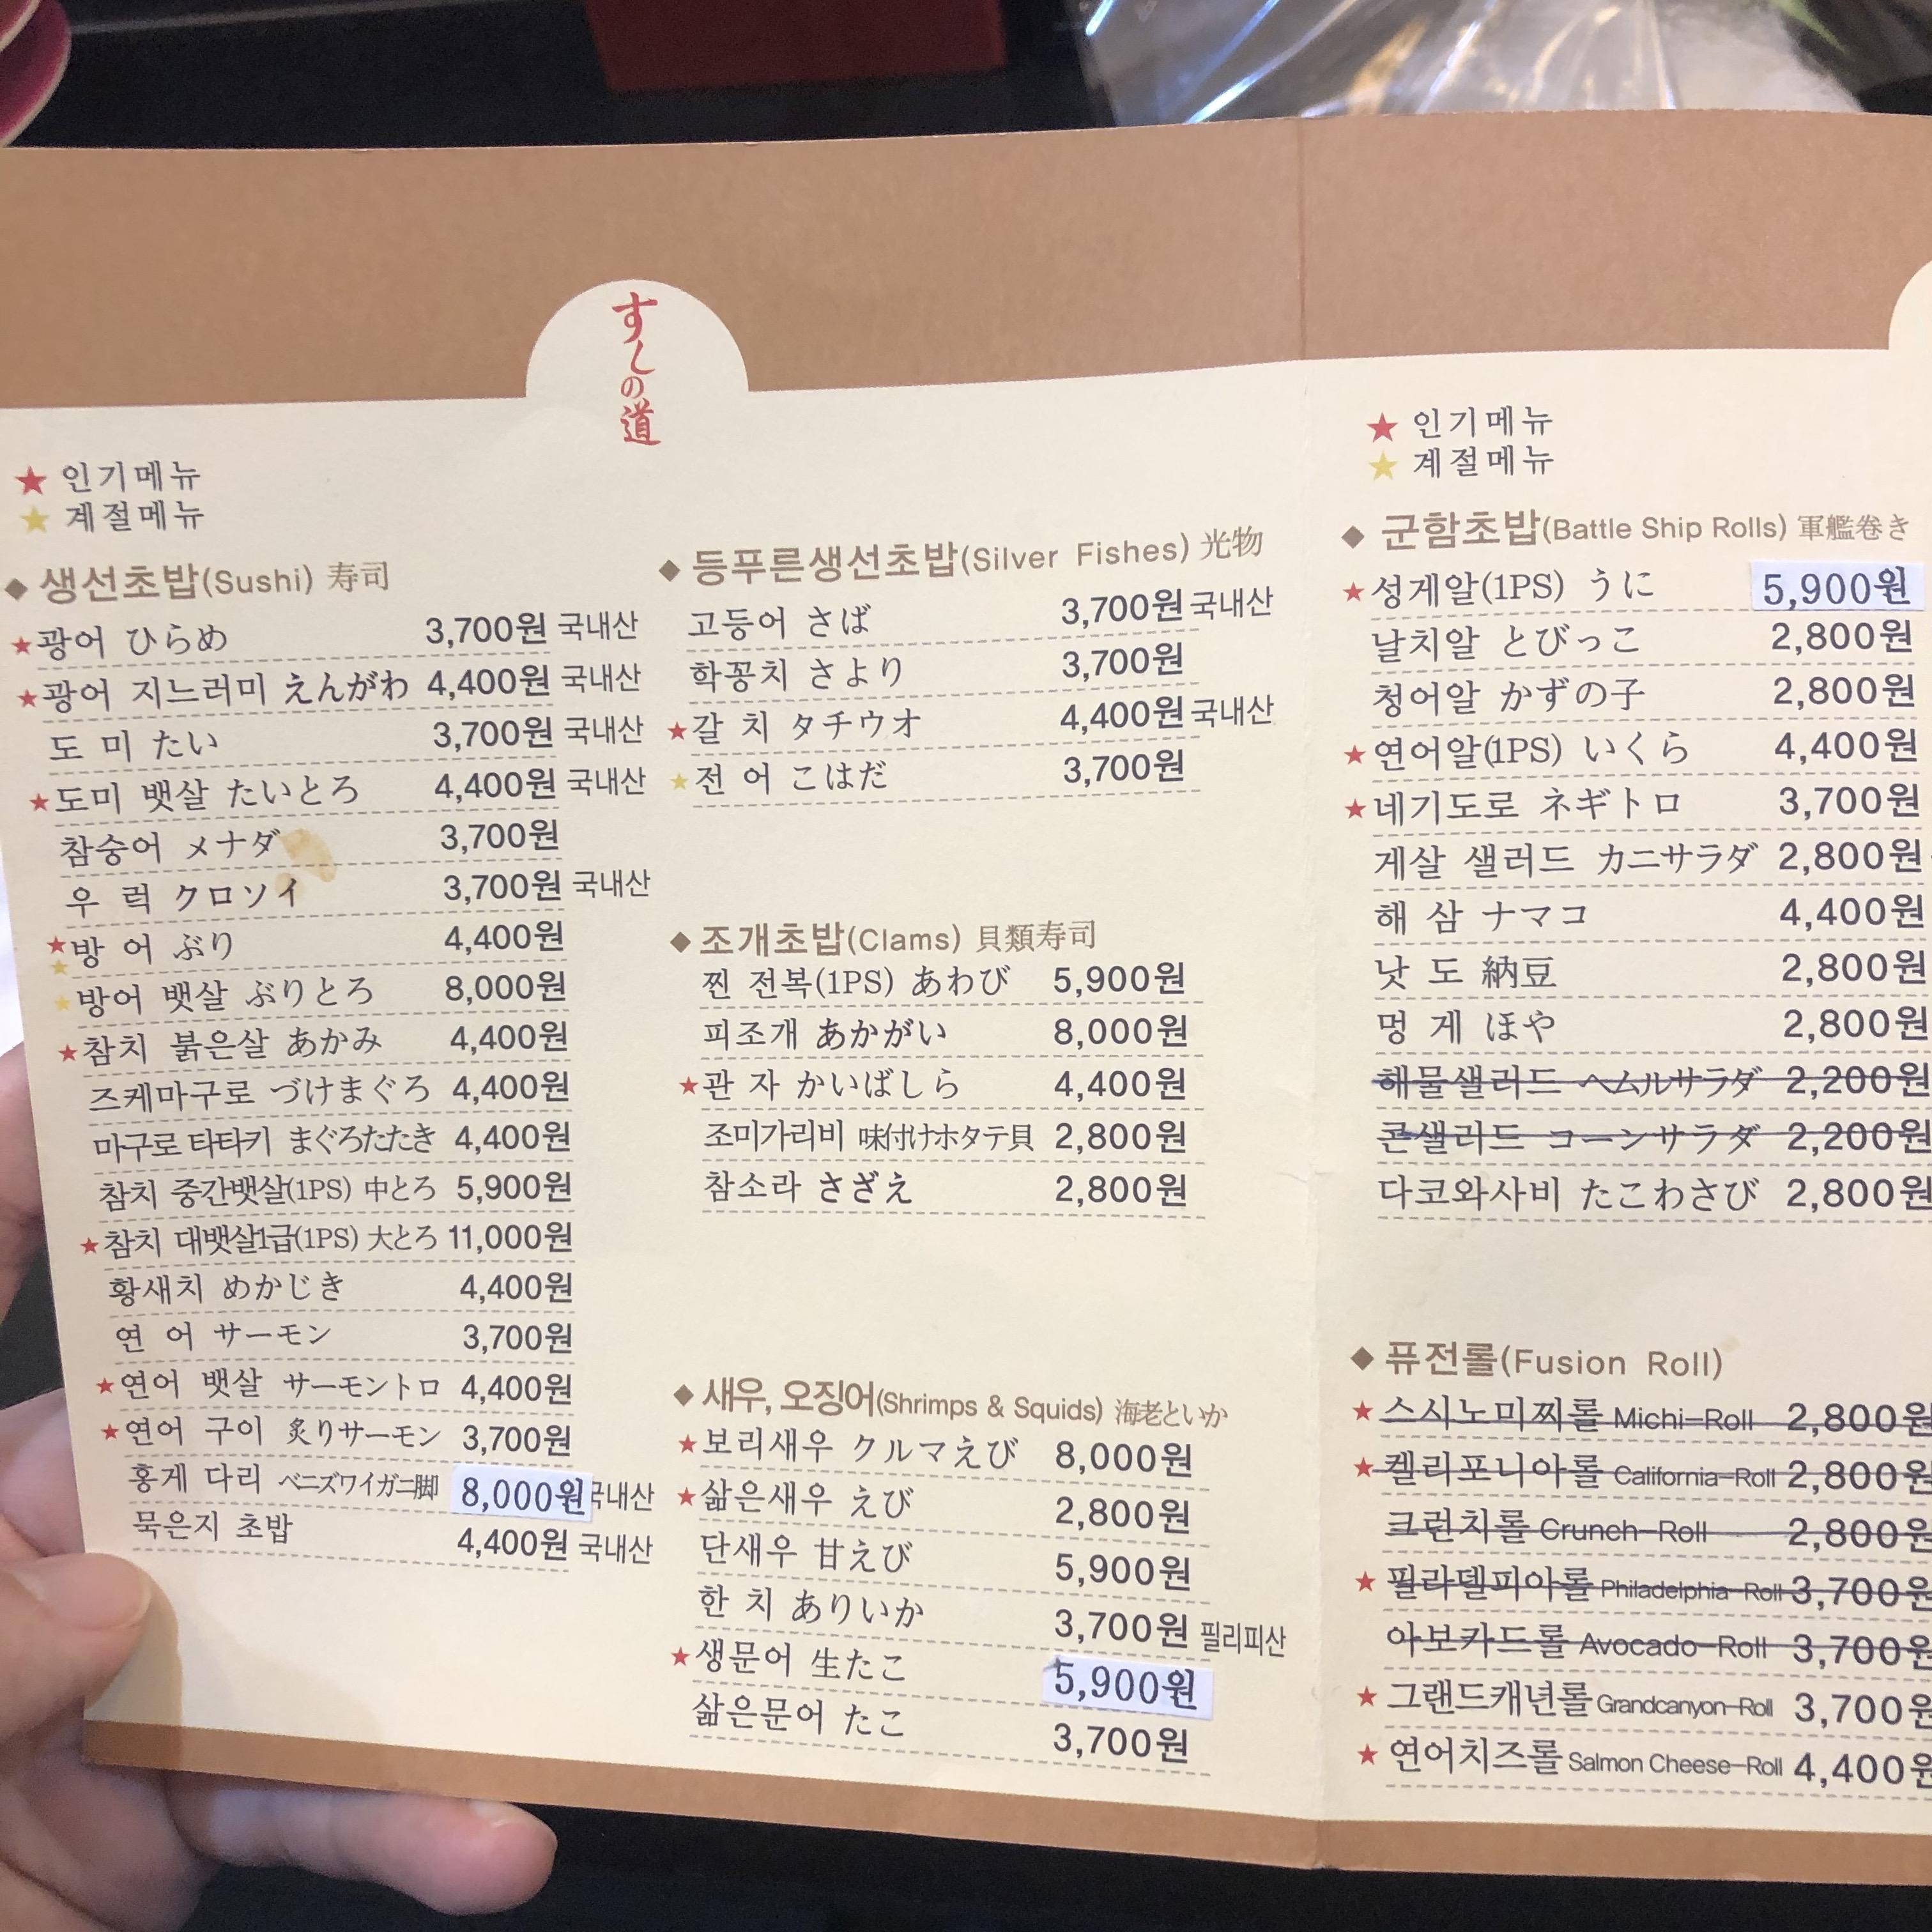 すしの道
★ 인기메뉴
★ 계절메뉴
◆ 생선초밥(Sushi) 寿司
★광어 ひらめ 3,700원 국내산
★광어 지느러미 えんがわ 4,400원 국내산
도 미 たい 3,700원 국내산
★도미 뱃살 たいとろ 4,400원 국내산
참숭어 メナダ 3,700원
우 럭 クロソイ 3,700원 국내산
★★방 어 ぶり 4,400원
★방어 뱃살 ぶりとろ 8,000원
★참치 붉은살 あかみ 4,400원
즈케마구로 づけまぐろ 4,400원
마구로 타타키 まぐろたたき 4,400원
참치 중간뱃살(1PS) 中とろ 5,900원
★참치 대뱃살1급(1PS) 大とろ 11,000원
황새치 めかじき 4,400원
연 어 サーモン 3,700원
★연어 뱃살 サーモントロ 4,400원
★연어 구이 炙りサーモン 3,700원
홍게 다리 ベニズワイガニ脚 8,000원 국내산
묵은지 초밥 4,400원 국내산
◆ 등푸른생선초밥(Silver Fishes) 光物
고등어 さば 3,700원 국내산
학꽁치 さより 3,700원
★갈 치 タチウオ 4,400원 국내산
★전 어 こはだ 3,700원
◆ 조개초밥(Clams) 貝類寿司
찐 전복(1PS) あわび 5,900원
피조개 あかがい 8,000원
★관 자 かいばしら 4,400원
조미가리비 味付けホタテ貝 2,800원
참소라 さざえ 2,800원
◆ 새우, 오징어(Shrimps & Squids) 海老といか
★보리새우 クルマえび 8,000원
★삶은새우 えび 2,800원
단새우 甘えび 5,900원
한 치 ありいか 3,700원 필리피산
★생문어 生たこ 5,900원
삶은문어 たこ 3,700원
★ 인기메뉴
★ 계절메뉴
◆ 군함초밥(Battle Ship Rolls) 軍艦巻き
★성게알(1PS) うに 5,900원
날치알 とびっこ 2,800원
청어알 かずの子 2,800원
★연어알(1PS) いくら 4,400원
★네기도로 ネギトロ 3,700원
게살 샐러드 カニサラダ 2,800원
해 삼 ナマコ 4,400원
낫 도 納豆 2,800원
멍 게 ほや 2,800원
해물샐러드 ヘムルサラダ 2,200원
콘샐러드 コーンサラダ 2,200원
다코와사비 たこわさび 2,800원
◆ 퓨전롤(Fusion Roll)
★스시노미찌롤 Michi-Roll 2,800원
★캘리포니아롤 California-Roll 2,800원
크런치롤 Crunch-Roll 2,800원
★필라델피아롤 Philadelphia-Roll 3,700원
아보카드롤 Avocado-Roll 3,700원
★그랜드캐년롤 Grandcanyon-Roll 3,700원
★연어치즈롤 Salmon Cheese-Roll 4,400원